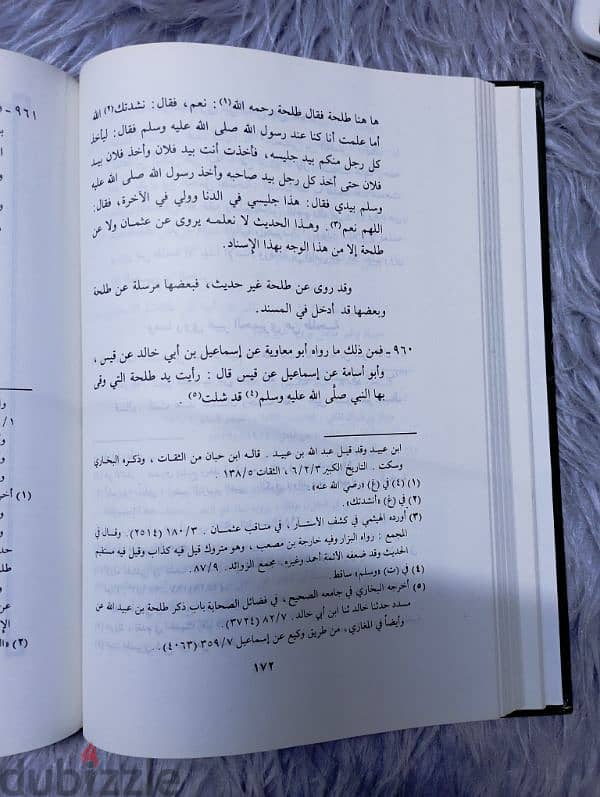 ها هنا طلحة فقال طلحة رحمه الله(١): نعم، فقال: نشدتك(٢) الله
أما علمت أنا كنا عند رسول الله صلى الله عليه وسلم فقال: ليأخذ
كل رجل منكم بيد جليسه، فأخذت أنت بيد فلان وأخذ فلان بيد
فلان حتى أخذ كل رجل بيد صاحبه وأخذ رسول الله صلى الله عليه
وسلم بيدي فقال: هذا جليسي في الدنا وولي في الآخرة، فقال:
اللهم نعم(٣). وهذا الحديث لا نعلمه يروى عن عثمان ولا عن
طلحة إلا من هذا الوجه بهذا الإسناد.
وقد روى عن طلحة غير حديث، فبعضها مرسلة عن طلحة
وبعضها قد أدخل في المسند.
٩٦٠ - فمن ذلك ما رواه أبو معاوية عن إسماعيل بن أبي خالد عن قيس،
وأبو أسامة عن إسماعيل عن قيس قال: رأيت يد طلحة التي وفى
بها النبي صلى الله عليه وسلم(٤) قد شلت(٥).
ابن عبيد وقد قيل عبد الله بن عبيد. قاله ابن حبان من الثقات، وذكره البخاري
وسكت. التاريخ الكبير ٦/٢/٣، الثقات ١٣٨/٥.
(١) (٤) في (غ) «رضي الله عنه».
(٢) في (غ) «أنشدتك».
(٣) أورده الهيثمي في كشف الأستار، في مناقب عثمان. ١٨٠/٣ (٢٥١٤). وقال في
المجمع: رواه البزار وفيه خارجة بن مصعب، وهو متروك قيل فيه كذاب وقيل فيه مستقيم
الحديث وقد ضعفه الأئمة أحمد وغيره. مجمع الزوائد. ٨٧/٩.
(٤) في (ت) «وسلم» ساقط.
(٥) أخرجه البخاري في جامعه الصحيح، في فضائل الصحابة باب ذكر طلحة بن عبيد الله عن
مسدد حدثنا خالد ثنا ابن أبي خالد. ٨٢/٧ (٣٧٢٤).
وأيضاً في المغازي، من طريق وكيع عن إسماعيل ٣٥٩/٧ (٤٠٦٣)..
١٧٢
٩٦١ -
(١) أخر
(٢)
dubizzle